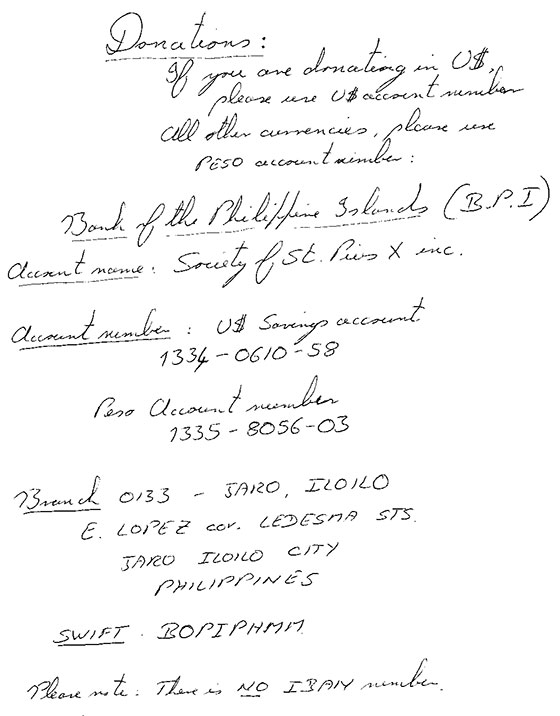 Donations:
If you are donating in U$,
please use U$ account number
All other currencies, please use
PESO account number:
Bank of the Philippine Islands (B.P.I)
Account name: Society of St. Pius X inc.
Account number: U$ Savings account
1334-0610-58
Peso Account number
1335-8056-03
Branch 0133 - JARO, ILOILO
E. LOPEZ cor. LEDESMA STS.
JARO ILOILO CITY
PHILIPPINES
SWIFT. BOPIPHMM
Please note: There is NO IBAN number.